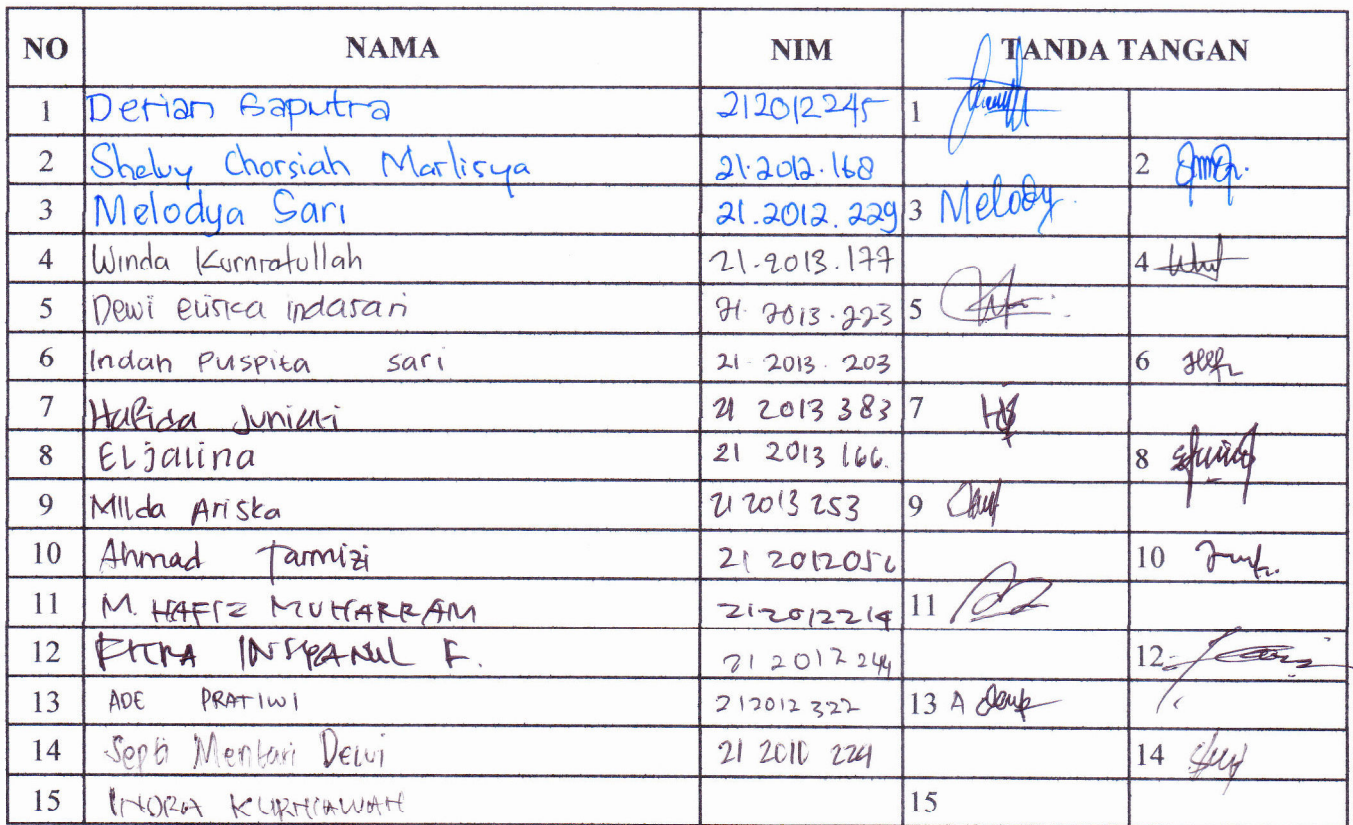 NO NAMA NIM TANDA TANGAN
1 Derian Saputra 212012245 1
2 Shelvy Chorsiah Marlisya 21.2012.168 2
3 Melodya Sari 21.2012.229 3 Melody
4 Winda Kurniatullah 21.2013.177 4
5 Dewi eliska indasari 21.2013.223 5
6 Indah Puspita sari 21.2013.203 6
7 Hafida Juniati 21 2013 383 7
8 Eljalina 21 2013 166. 8
9 Milda Ariska 21 2013 253 9
10 Ahmad Tarmizi 21 2012056 10
11 M. HAFIZ MUHARRAM 212012214 11
12 FITRA F. 21 2012 244 12
13 ADE PRATIWI 212012322 13 A
14 Septi Mentari Dewi 21 2010 224 14
15 INDRA KURNIAWAN 15